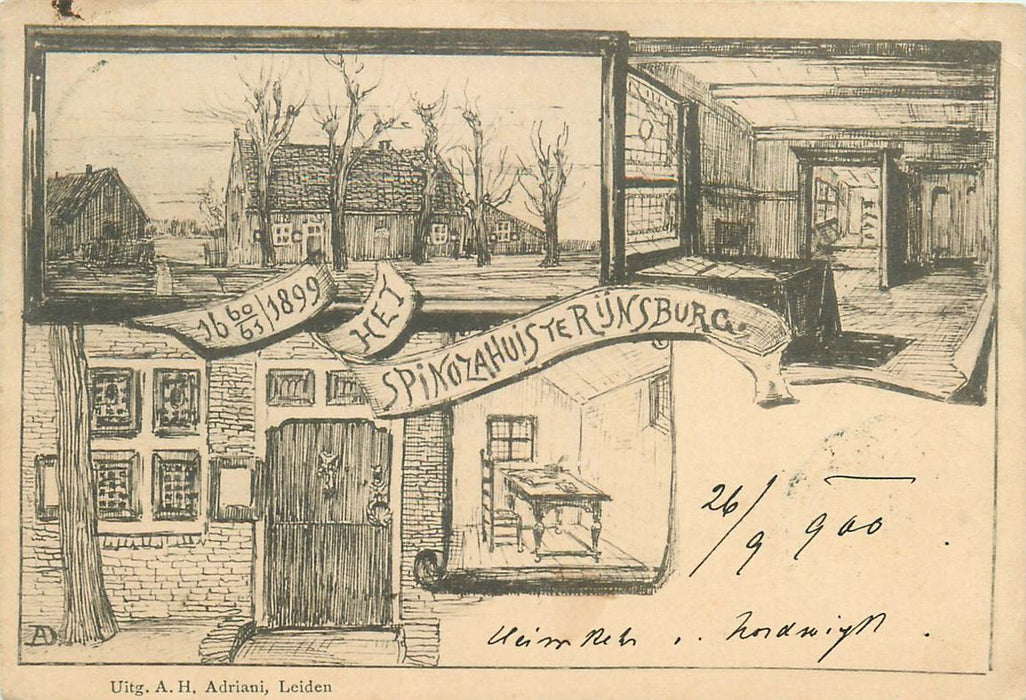 16 60/63 / 1899
HET
SPINOZAHUIS TE RIJNSBURG.
26/9 900
AD
Uitg. A. H. Adriani, Leiden